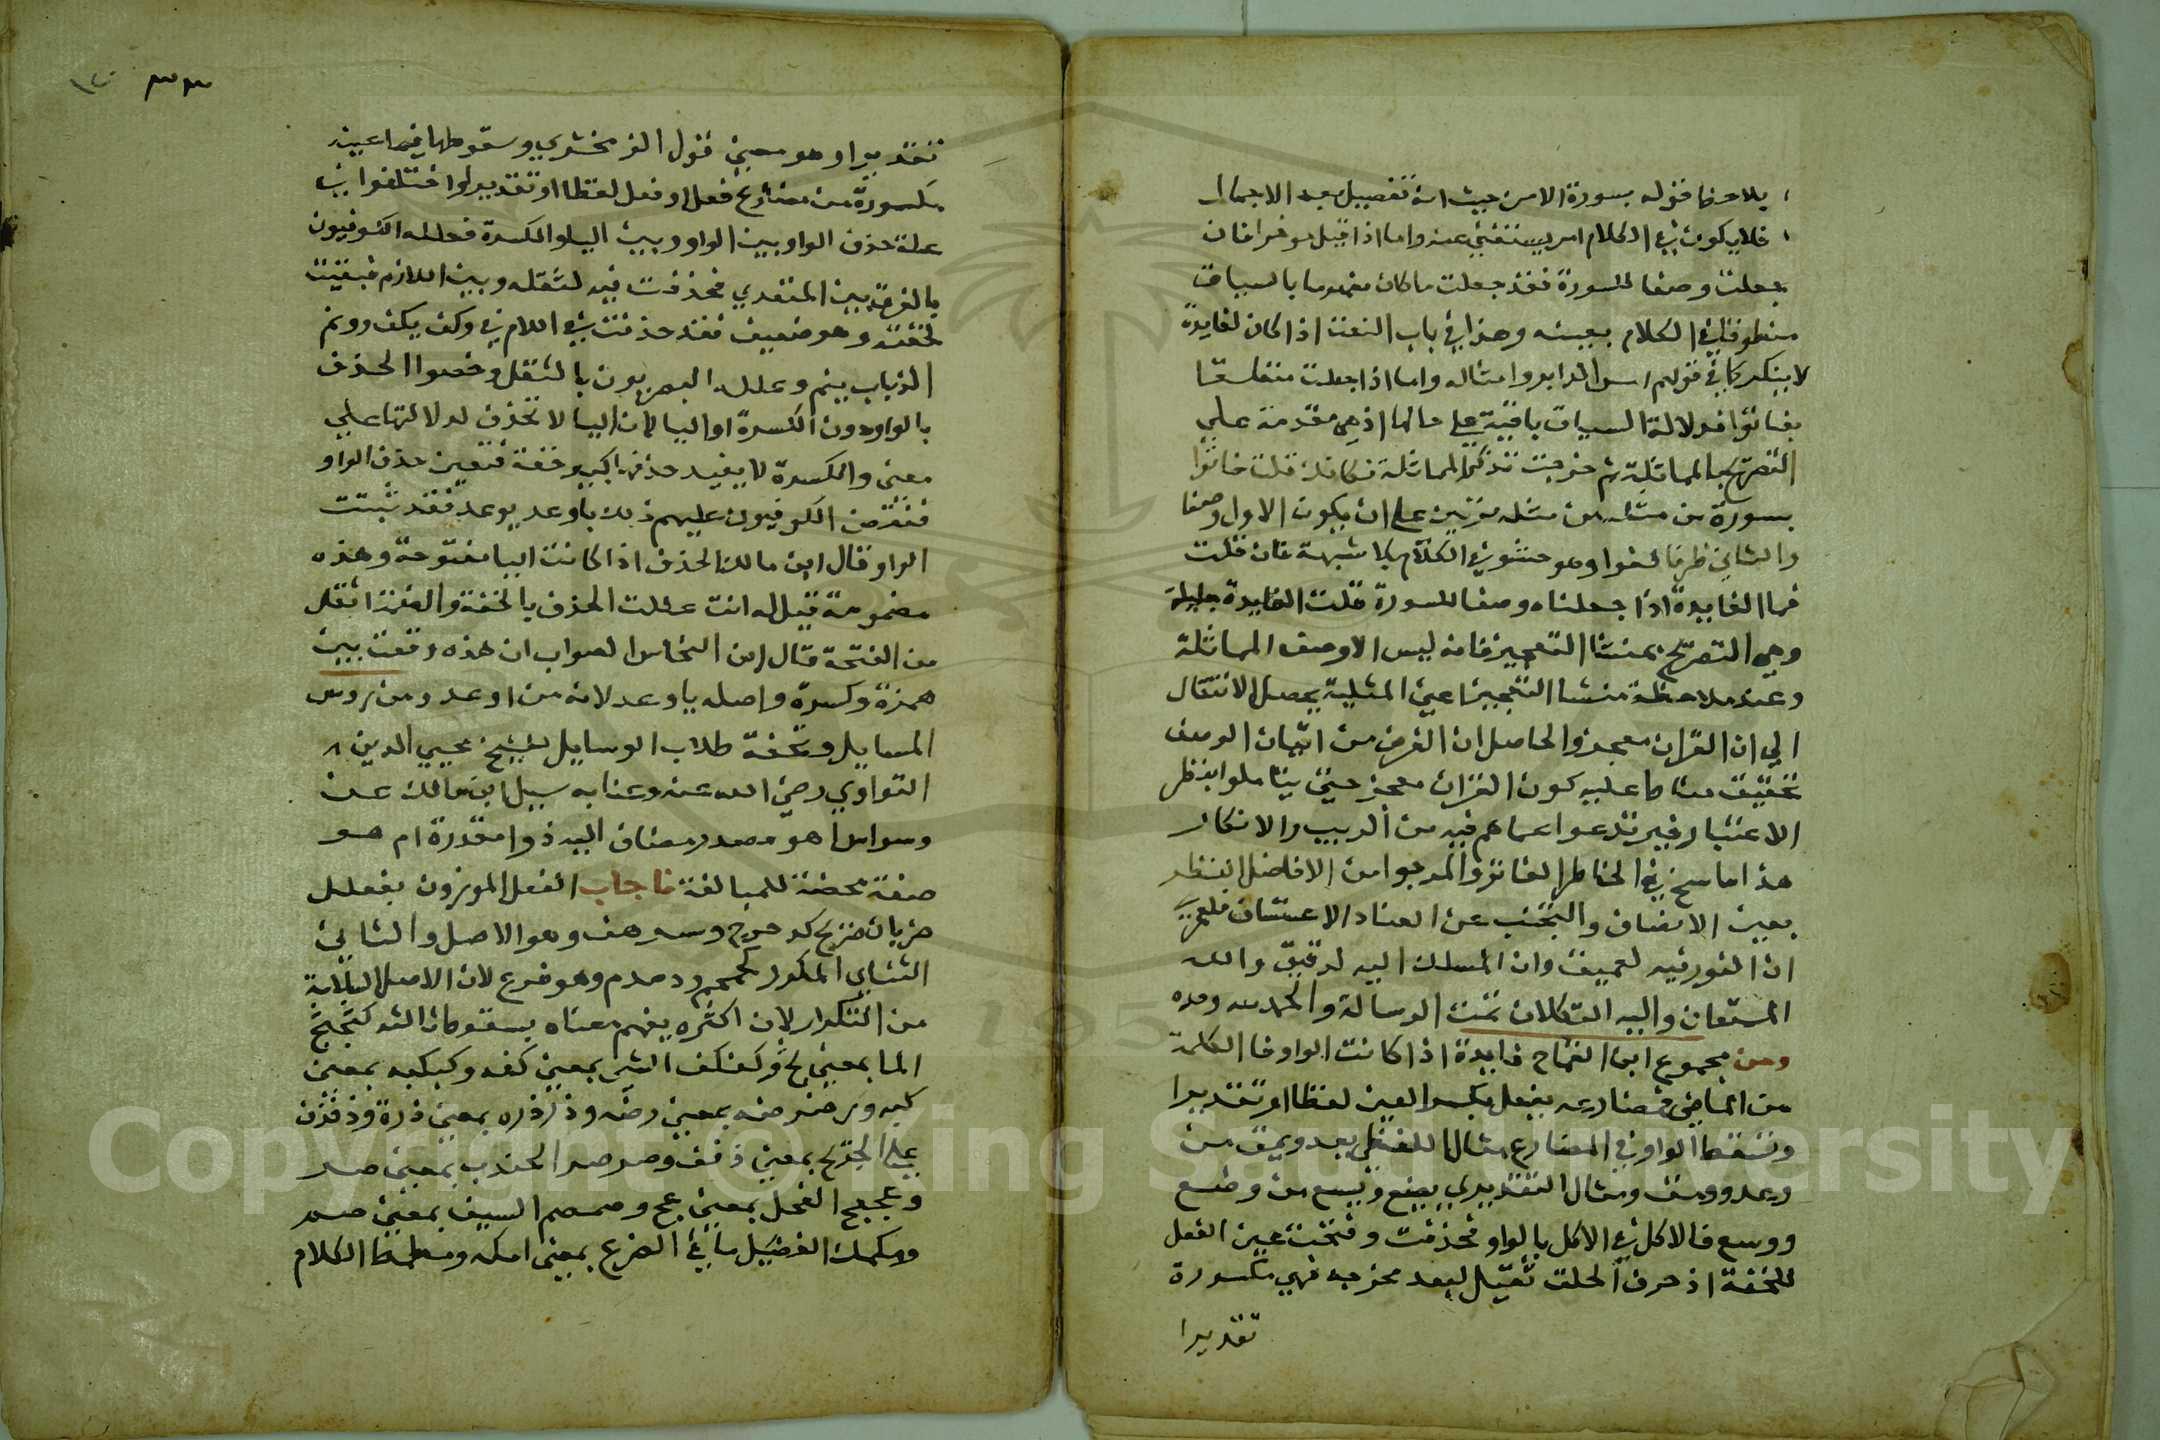 يلاحظ قوله بسورة الا من حيث انه تفصيل بعد الاجمال
فلا يكون في الكلام امر يستغني عنه واما اذا قيل موخرا فان
جعلت وصفا للسورة فقد جعلت ما كان مفهوما بالسياق
منطوقا في الكلام بعينه وهذا في باب النعت اذا كان لفايدة
لا ينكر كما في قولهم امس الدابر وامثاله واما اذا جعلت متعلقا
بفاتوا فدلالة السياق باقية على حالها اذ هي مقدمة على
التصريح بالمماثلة ثم صرحت بذكر المماثلة فكانك قلت فاتوا
بسورة من مثله من مثله مرتين على ان يكون الاول وصفا
والثاني ظرفا لغوا وهو حشو في الكلام بلا شبهة فان قلت
فما الفايدة اذا جعلناه وصفا للسورة قلت الفايدة جليلة
وهي التصريح بمنشا التعجيز فانه ليس الا وصف المماثلة
وعند ملاحظة منشا التعجيز اعني المثلية يحصل الانتقال
الي ان القران معجز والحاصل ان الغرض من اتيان الوصف
تحقيق مناط عليه كون القران معجز حتى يتاملوا بنظر
الاعتبار فيرتدعوا عما هم فيه من الريب والانكار
هذا ما سنح في الخاطر الفاتر والمرجوا من الافاضل النظر
بعين الانصاف والتجنب عن العناد الاعتساف فلعمري
ان الغور فيه لعميق وان المسلك اليه لدقيق والله
المستعان واليه التكلان تمت الرسالة والحمد لله وحده
ومن مجموع ابن القماح فايدة اذا كانت الواو فا الكلمة
من الماضي فمضارعه يفعل بكسر العين لفظا او تقديرا
وتسقط الواو في المضارع مثال اللفظي يعد ويمق من
وعد وومق ومثال التقديري يضع ويسع من وضع
ووسع فالاكل في الاكل بالواو فحذفت وفتحت عين الفعل
للخفة اذ حرف الحلق ثقيل لبعد مخرجه فهي مكسورة
تقديرا
١٢٠ ٣٣
تقديرا وهو معنى قول الزمخشري وسقوطها فيما عينه
مكسورة من مضارع فعل او فعل لفظا او تقديرا واختلفوا في
علة حذف الواو بين الواو وبين اليا والكسرة فعلله الكوفيون
بالفرق بين المتعدي فحذفت فيه لثقله وبين اللازم فبقيت
لخفته وهو ضعيف فقد حذفت في اللازم في وكف يكف وونم
الذباب ينم وعلله البصريون بالثقل وخصوا الحذف
بالواو دون الكسرة او اليا لان اليا لا تحذف لدلالتها على
معنى والكسرة لا يفيد حذفها كبير خفة فتعين حذف الواو
فنقض الكوفيون عليهم ذلك باوعد يوعد فقد ثبتت
الواو قال ابن مالك الحذف اذا كانت اليا مفتوحة وهذه
مضمومة قيل له انت عللت الحذف بالخفة والضمة اثقل
من الفتحة قال ابن النحاس الصواب ان هذه وقعت بين
همزة وكسرة واصله يا وعد لانه من اوعد ومن روس
المسايل وتحفة طلاب الوسايل للشيخ محيي الدين
النواوي رضي الله عنه وعنا به سيل ابن مالك عن
وسواس اهو مصدر مضاف اليه ذو مقدرة ام هو
صفة محضة للمبالغة فاجاب الفعل الموزون بفعلل
ضربان ضرب كدحرج وسرهف وهو الاصل والثاني
الثنايي المكرر كحمحم ودمدم وهو فرع لان الاصل السلامة
من التكرار لان اكثره يفهم معناه بسقوط ثالثه كثجثج
الما بمعنى ثج وكفكف الشي بمعنى كفه وكبكبه بمعنى
كبه ورضرضه بمعنى رضه وذرذره بمعنى ذره وذفذف
على الجريح بمعنى ذفف وصرصر الجندب بمعنى صر
وعجعج الفحل بمعنى عج وصمصم السيف بمعنى صمم
ومكمك الفصيل ما في الضرع بمعنى امكه ومطمط الكلام
Copyright © King Saud University